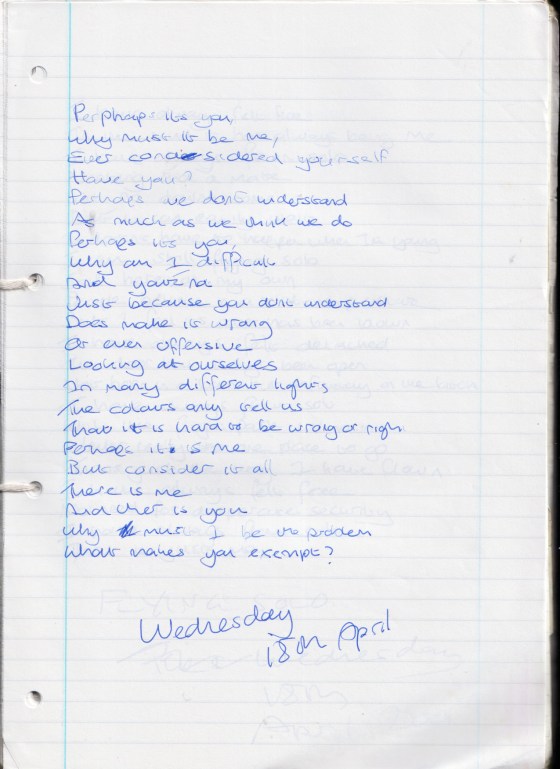 Perphaps its you,
Why must it be me,
Ever considered yourself
Have you?
Perhaps we dont understand
As much as we think we do
Perhaps its you,
Why am I difficult
And your no
Just because you dont understand
Does make it wrong
Or even offensive
Looking at ourselves
In many different lights,
The colours only tell us
That it is hard to be wrong or right
Perhaps it is me
But consider it all
There is me
And ther is you
Why must I be the problem
What makes you exempt?
Wednesday
18th April